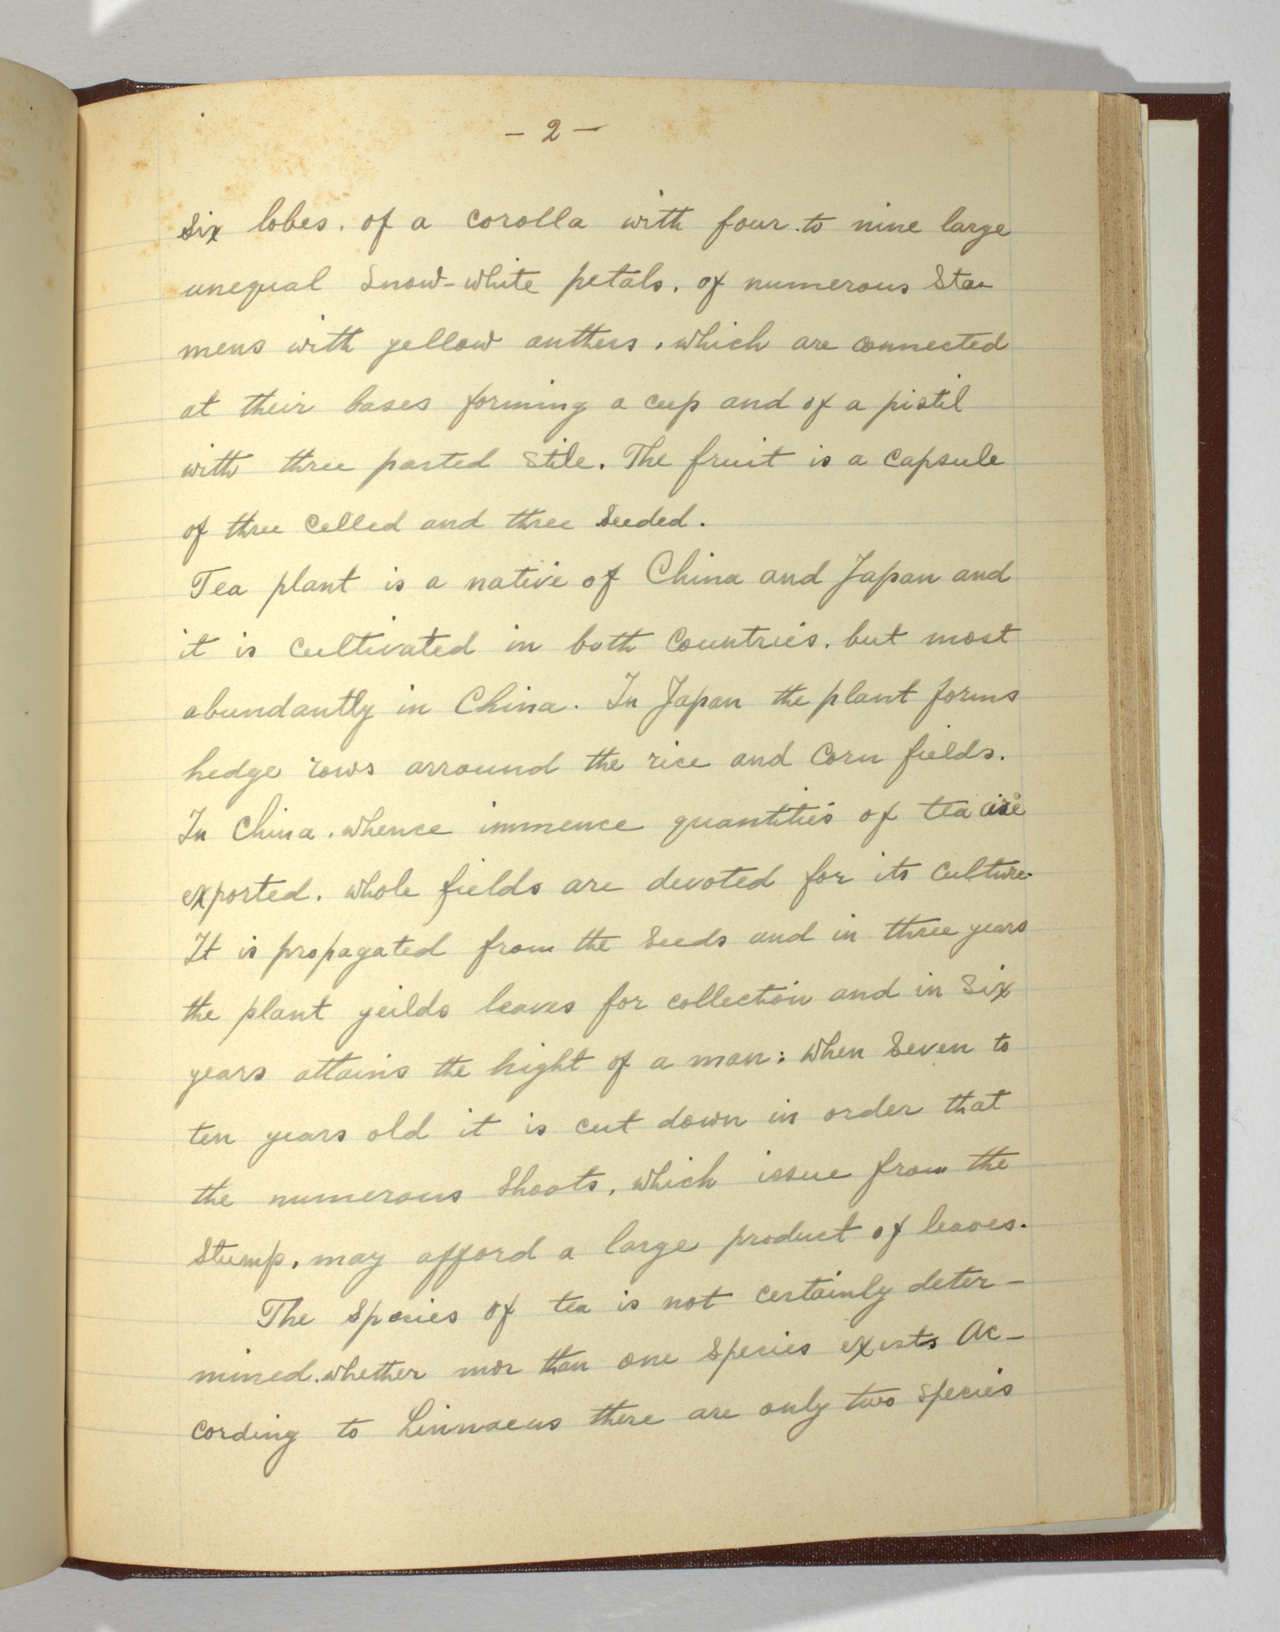 - 2 -
Six lobes. of a corolla with four to nine large
unequal Snow-white petals. of numerous Sta-
mens with yellow anthers. which are connected
at their bases forming a cup and of a pistil
with three parted Stile. The fruit is a Capsule
of three Celled and three Seeded.
Tea plant is a native of China and Japan and
it is Cultivated in both Countries. but most
abundantly in China. In Japan the plant forms
hedge rows arround the rice and Corn fields.
In China. whence immence quantities of tea are
exported. whole fields are devoted for its Culture.
It is propagated from the Seeds and in three years
the plant yeilds leaves for collection and in Six
years attains the hight of a man: when Seven to
ten years old it is cut down in order that
the numerous Shoots. which issue from the
Stump. may afford a large product of leaves.
The Species of tea is not certainly deter-
mined. whether mor than one Species exists Ac-
cording to Linnaeus there are only two Species